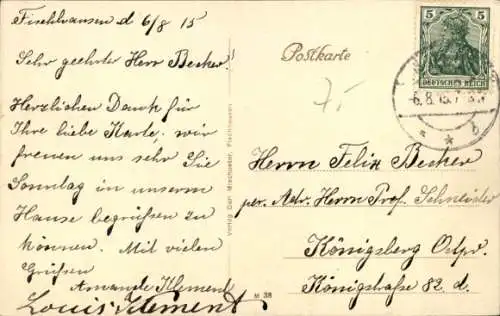 Fischhausen d 6/8 15
Sehr geehrter Herr Becker!
Herzlichen Dank für
Ihre liebe Karte. wir
freuen uns sehr Sie
Sonntag in unserm
Hause begrüßen zu
können. Mit vielen
Grüßen
Amanda Klement
Louis Klement
Verlag Carl Mischpeter, Fischhausen
M 38
Postkarte
5 5
DEUTSCHES REICH
6.8.15
* * b
Herrn Felix Becker
per. Adr. Herrn Prof. Schneider
Königsberg Ostpr.
Königstraße 82 d.